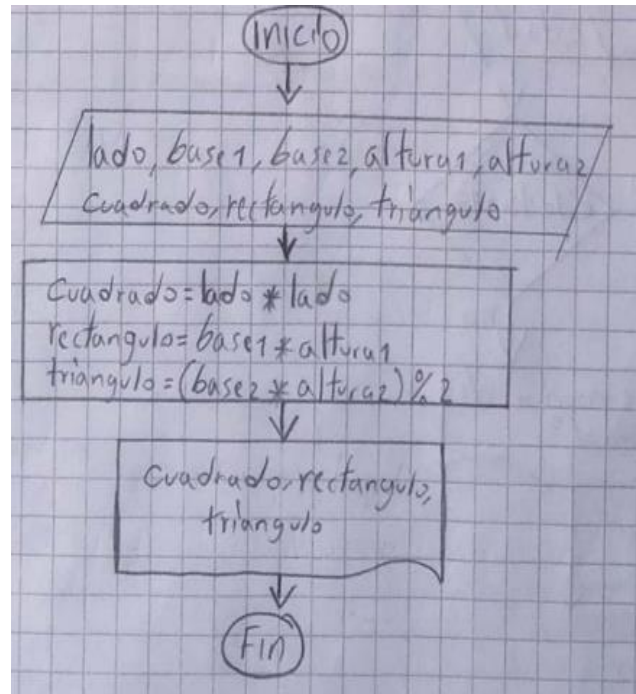 Inicio
lado, base1, base2, altura1, altura2
cuadrado, rectangulo, triangulo
cuadrado = lado * lado
rectangulo = base1 * altura1
triangulo = (base2 * altura2) % 2
cuadrado, rectangulo,
triangulo
Fin